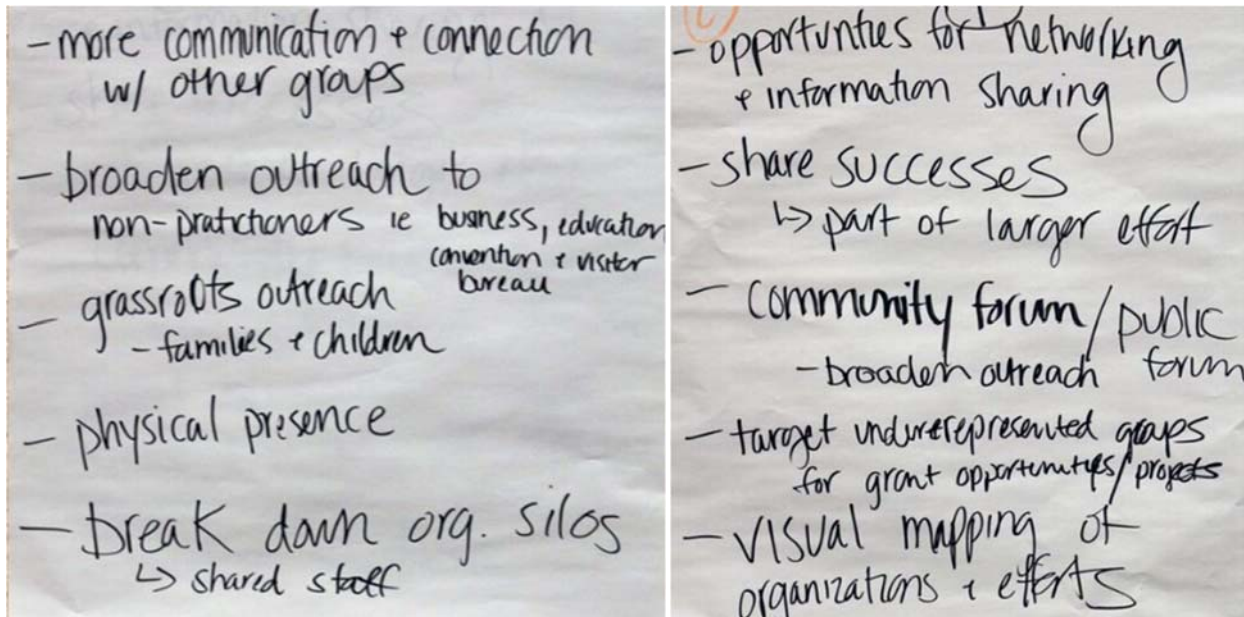 - more communication + connection
w/ other groups
- broaden outreach to
non-pratictioners ie business, education
convention + visitor
bureau
- grassroots outreach
- families + children
- physical presence
- break down org. silos
↳ shared staff
- opportunties for networking
+ information sharing
- share successes
↳ part of larger effort
- community forum / public
forum
- broaden outreach
- target underrepresented groups
for grant opportunities / projects
- visual mapping of
organizations + efforts